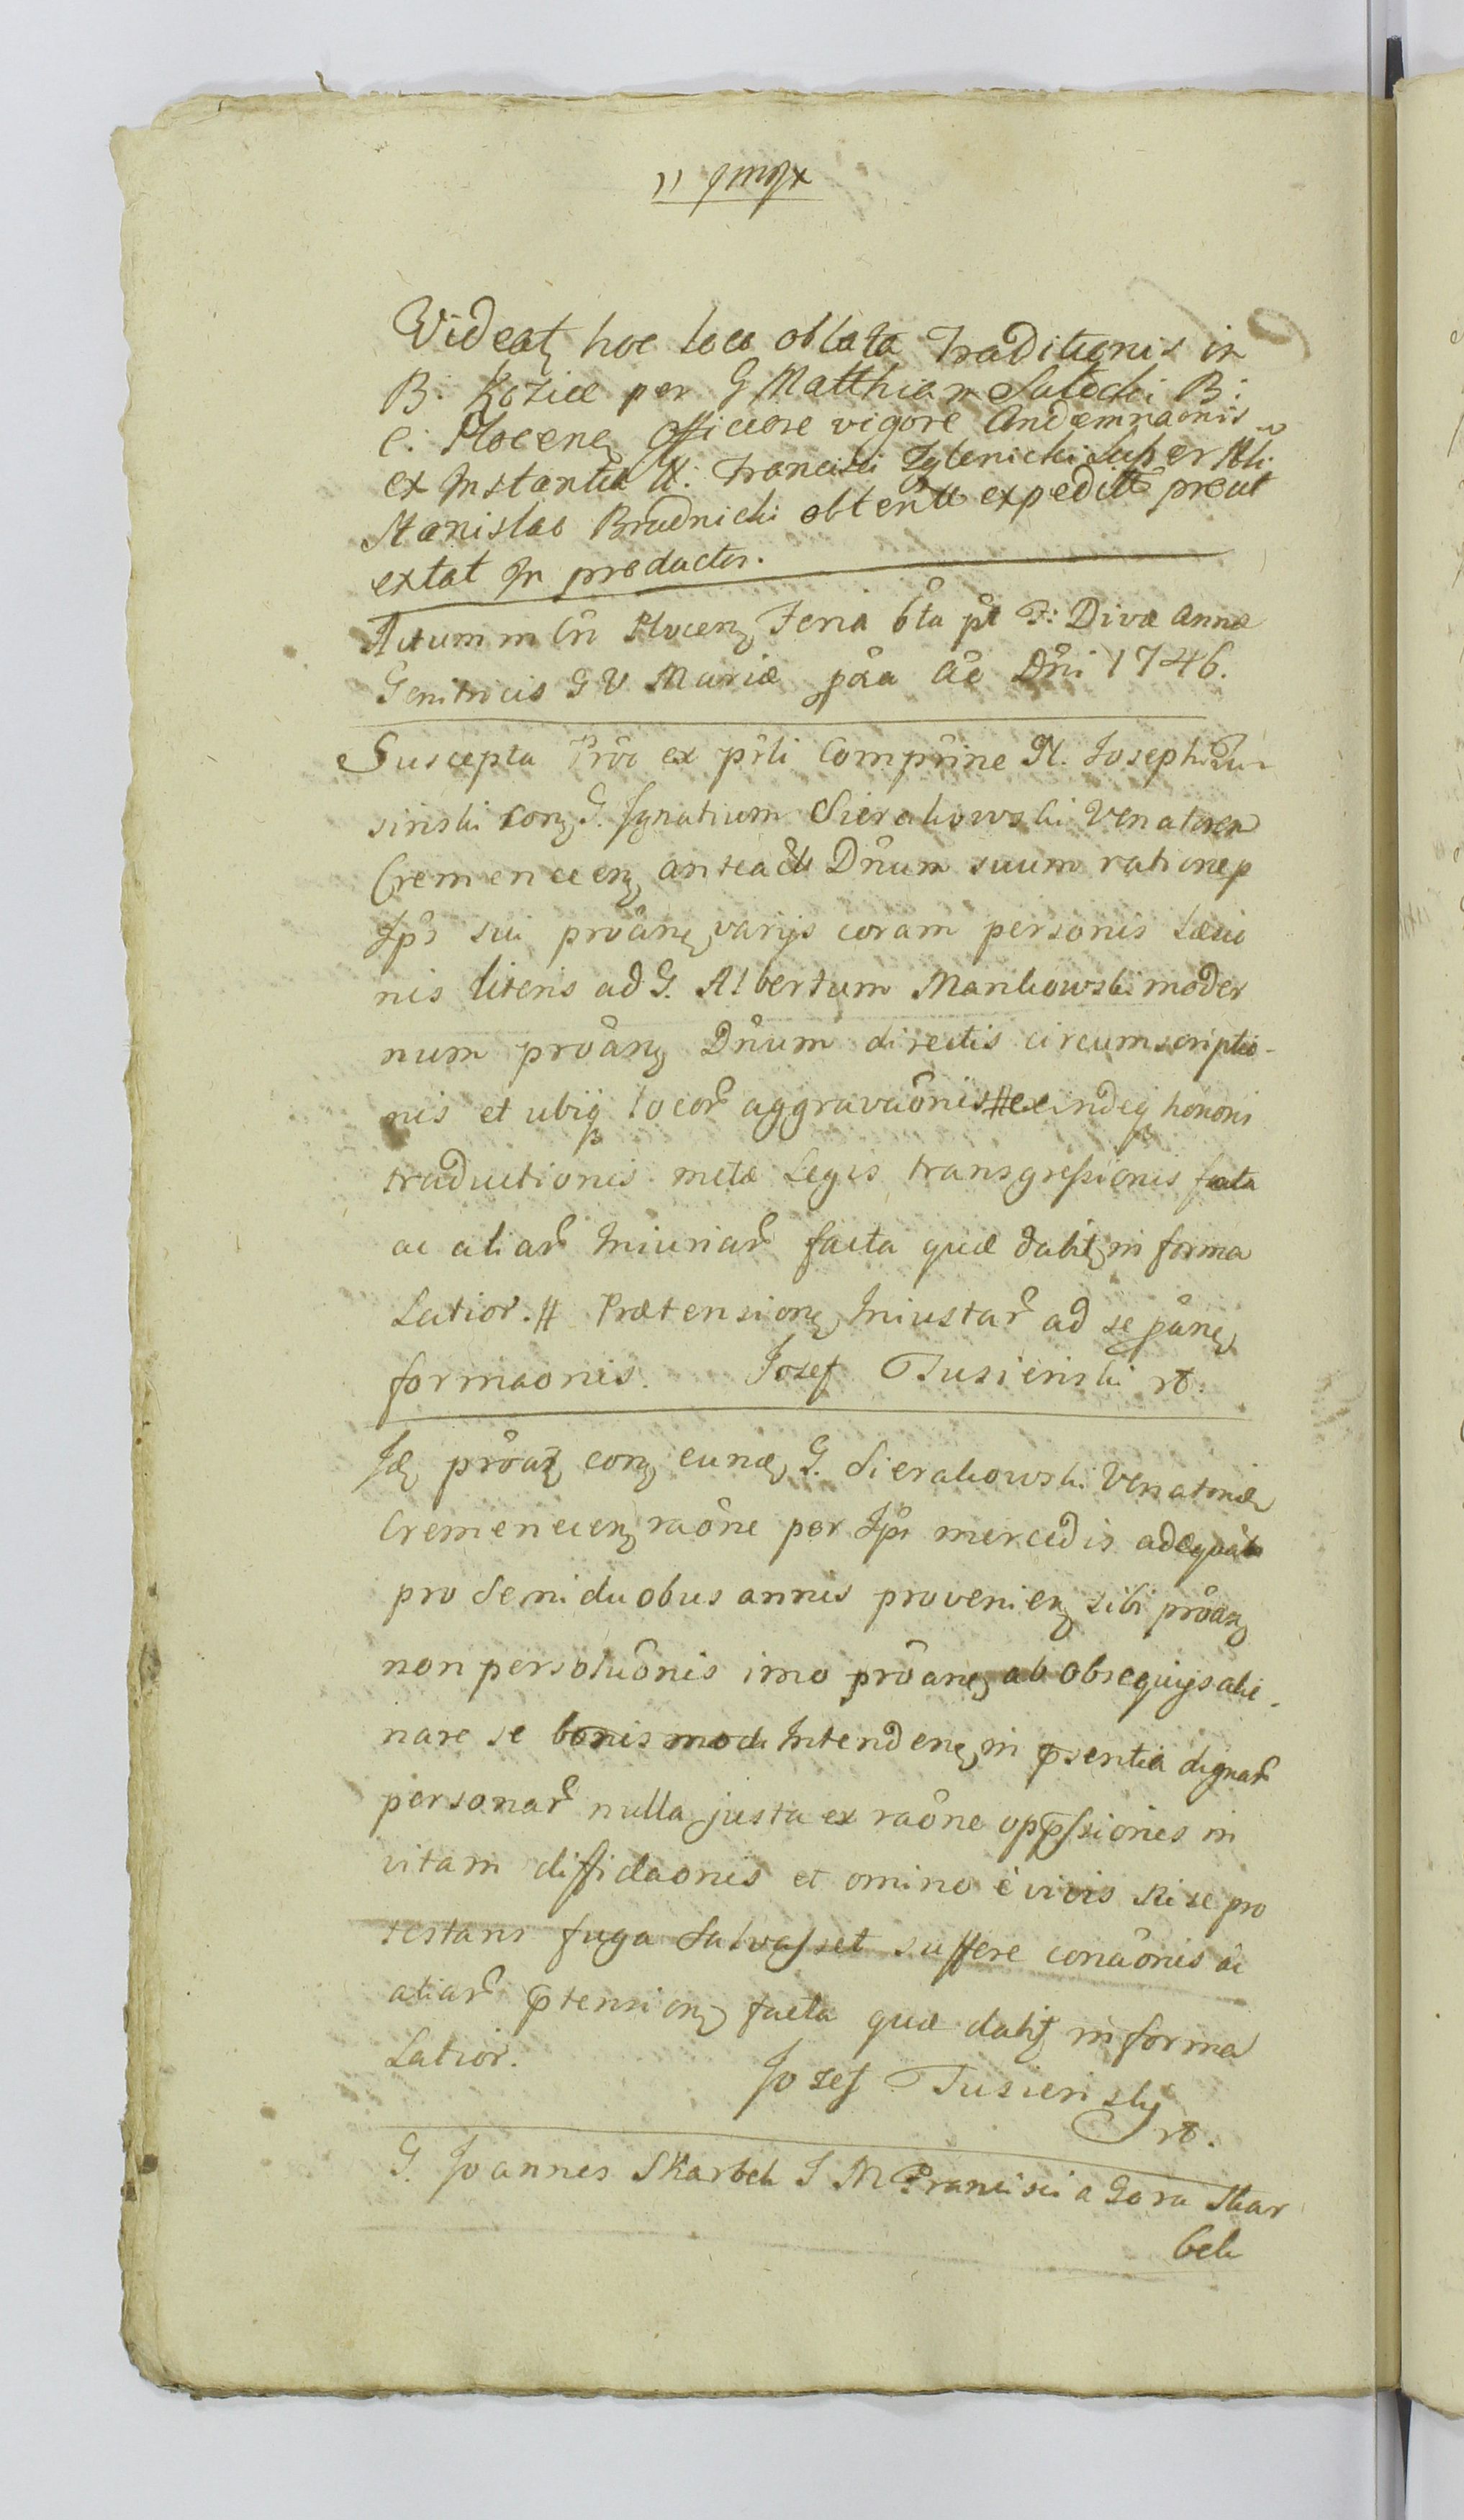 Videatꝫ hoc loco oblata Traditionis in
B: Kozice per G Matthiam Sutocki B:
C: Plocenꝫ Officiose vigore Condemnaonis
ex Instantia N: Francisci Zglenicki Super Nli
Stanislao Brudnicki obtentæ expeditæ prout
extat In productis.
Actum in Crô Plocenꝫ Feria 6ta pt F: Divæ Annæ
Genitricis G V Mariæ pâa Aô Dñi 1746.
Suscepta Prôt ex pñli Comprine N. Josephi Tu-
sinski conꝫ G. Ignatium Sierakowski Venatorem
Cremenecenꝫ anteactū Dñum suum ratione p
Ipm sui prôanꝫ varijs coram personis Lævio
nis literis ad G. Albertum Mankowski moder
num prôanꝫ Dñum directis circumscriptio-
nis et ubiqꝫ locor aggravaônis # exindeqꝫ honoris
traductionis metæ Legis transgressionis facta
ac aliar Iniuriar facta quæ dabitꝫ in forma
Latior. # Prætensionꝫ Iniustar ad se pâneꝫ
formaonis. Josef Tusienski rt.
Idꝫ prôanꝫ conꝫ eundꝫ G. Sierakowski Venatorem
Cremenecenꝫ raône per Ipm mercedis adæquatæ
pro Semiduobus annis provenienꝫ sibi prôanꝫ
non persoluônis imo prôaneꝫ ab obsequijs alie-
nare se bonis modis Intendenꝫ in præsentia dignar
personar nulla justa ex raône oppressiones in
vitam diffidaonis et omino e vivis ni se pro
testans fuga Salvasset suffere conaônis ac
aliar prætensionꝫ facta quæ dabitꝫ in forma
Latior.
Josef Tusienski
rt.
G. Joannes Skarbek S M Francisci a Gora Skar
bek